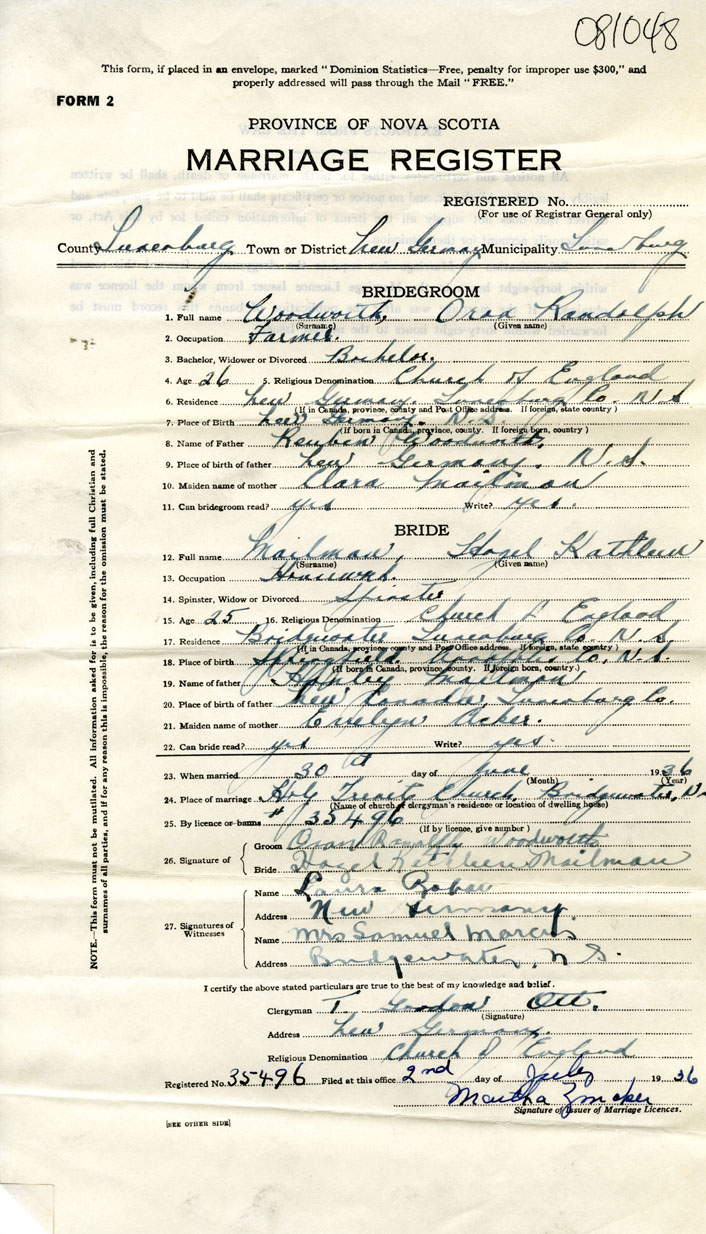 081048
This form, if placed in an envelope, marked "Dominion Statistics—Free, penalty for improper use $300," and
properly addressed will pass through the Mail "FREE."
FORM 2
PROVINCE OF NOVA SCOTIA
MARRIAGE REGISTER
REGISTERED No.
(For use of Registrar General only)
County Lunenburg Town or District New Germany Municipality Lunenburg
BRIDEGROOM
1. Full name Woodworth, Oran Randolph
(Surname) (Given name)
2. Occupation Farmer.
3. Bachelor, Widower or Divorced Bachelor.
4. Age 26 5. Religious Denomination Church of England
6. Residence New Germany, Lunenburg Co. N.S
(If in Canada, province, county and Post Office address. If foreign, state country)
7. Place of Birth New Germany. N.S.
(If born in Canada, province, county. If foreign born, country)
8. Name of Father Reuben Woodworth.
9. Place of birth of father New Germany. N.S.
10. Maiden name of mother Clara Mailman
11. Can bridegroom read? yes Write? yes.
BRIDE
12. Full name Mailman, Hazel Kathleen
(Surname) (Given name)
13. Occupation Housework.
14. Spinster, Widow or Divorced Spinster
15. Age 25 16. Religious Denomination Church of England
17. Residence Bridgewater Lunenburg Co. N.S
(If in Canada, province, county and Post Office address. If foreign, state country)
18. Place of birth Co, N.S.
(If born in Canada, province, county. If foreign born, country)
19. Name of father Mailman
20. Place of birth of father New Lunenburg Co.
21. Maiden name of mother Evelyn Baker.
22. Can bride read? yes Write? yes.
23. When married 30th day of June 1936
(Month) (Year)
24. Place of marriage Holy Trinity Church, Bridgewater, N.S
(Name of church, clergyman's residence or location of dwelling house)
25. By licence or banns # 35496
(If by licence, give number)
26. Signature of
Groom Oran Randolph Woodworth
Bride Hazel Kathleen Mailman
27. Signatures of Witnesses
Name Laura
Address New Germany.
Name Mrs Samuel Marcus
Address Bridgewater, N S.
I certify the above stated particulars are true to the best of my knowledge and belief.
Clergyman T. Gordon Ott.
(Signature)
Address New Germany.
Religious Denomination Church of England
Registered No. 35496 Filed at this office 2nd day of July 1936
Martha Zincker
Signature of Issuer of Marriage Licences.
[SEE OTHER SIDE]
NOTE.—This form must not be mutilated. All information asked for is to be given, including full Christian and
surnames of all parties, and if for any reason this is impossible, the reason for the omission must be stated.